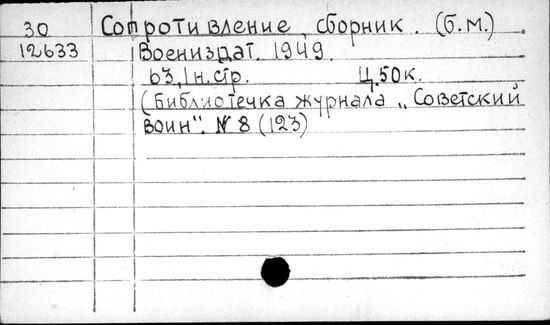 30 Сопротивление, сборник. (б.м.)
12633 Воениздат. 1949.
63,1н.стр. Ц.50к.
(Библиотечка журнала „Советский
воин". № 8 (123)